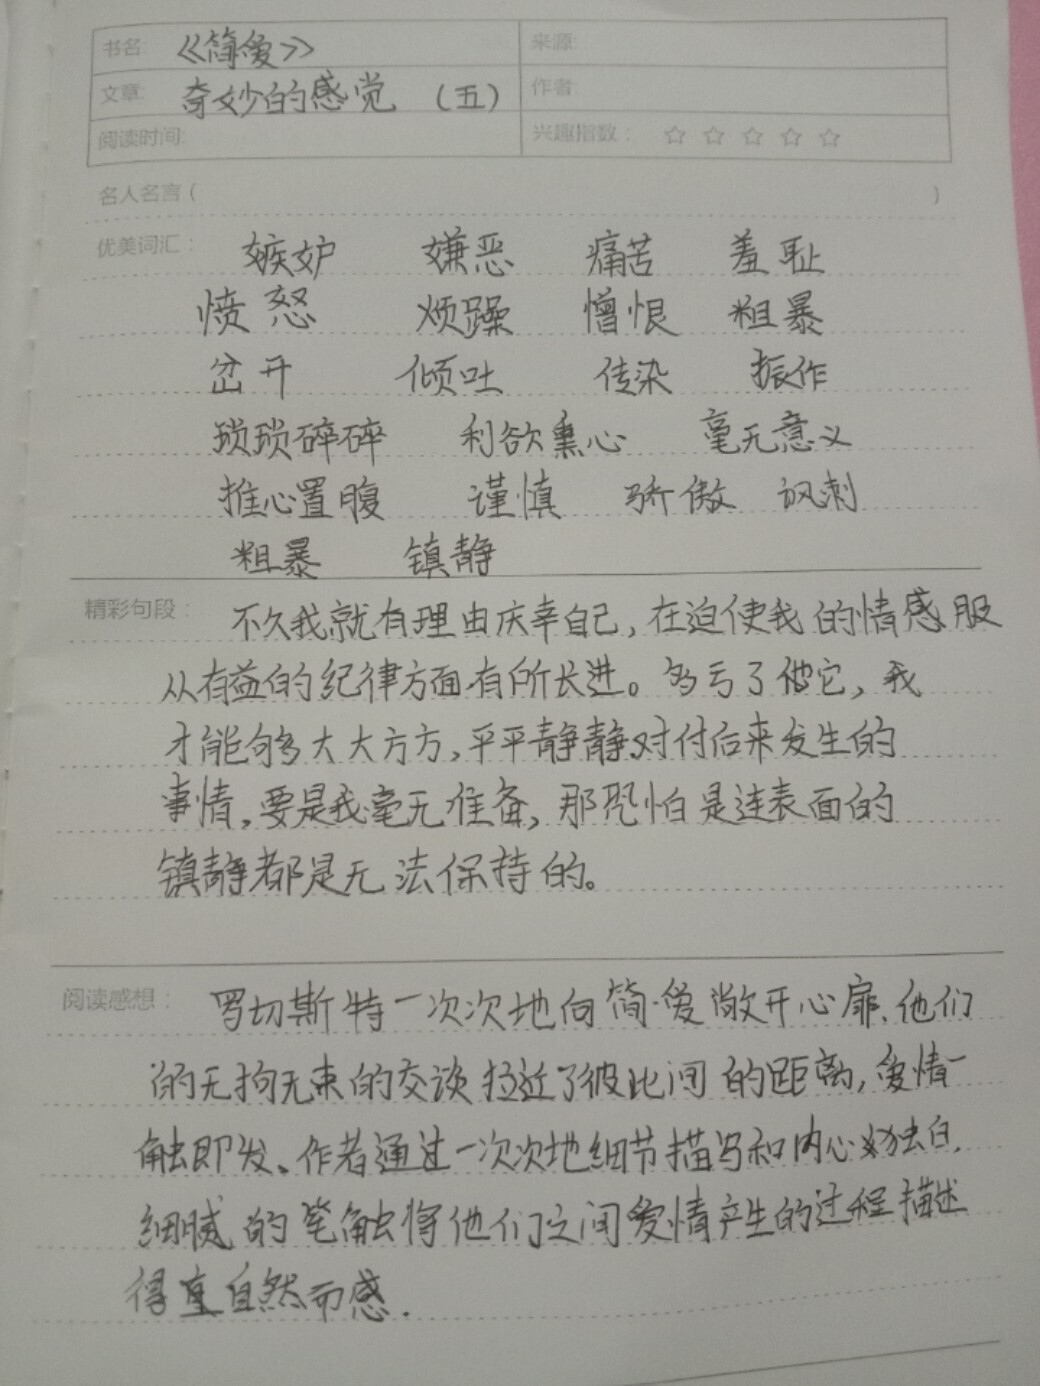 书名: 《简爱》 来源:
文章: 奇妙的感觉 （五） 作者:
阅读时间: 兴趣指数： ☆ ☆ ☆ ☆ ☆
名人名言（ ）
优美词汇： 嫉妒 嫌恶 痛苦 羞耻
愤怒 烦躁 憎恨 粗暴
岔开 倾吐 传染 振作
琐琐碎碎 利欲熏心 毫无意义
推心置腹 谨慎 骄傲 讽刺
粗暴 镇静
精彩句段： 不久我就有理由庆幸自己，在迫使我的情感服
从有益的纪律方面有所长进。多亏了它，我
才能够大大方方，平平静静对付后来发生的
事情，要是我毫无准备，那恐怕是连表面的
镇静都是无法保持的。
阅读感想： 罗切斯特一次次地向简·爱敞开心扉，他们
的无拘无束的交谈拉近了彼此间的距离，爱情一
触即发。作者通过一次次地细节描写和内心独白，
细腻的笔触将他们之间爱情产生的过程描述
得自然而感.